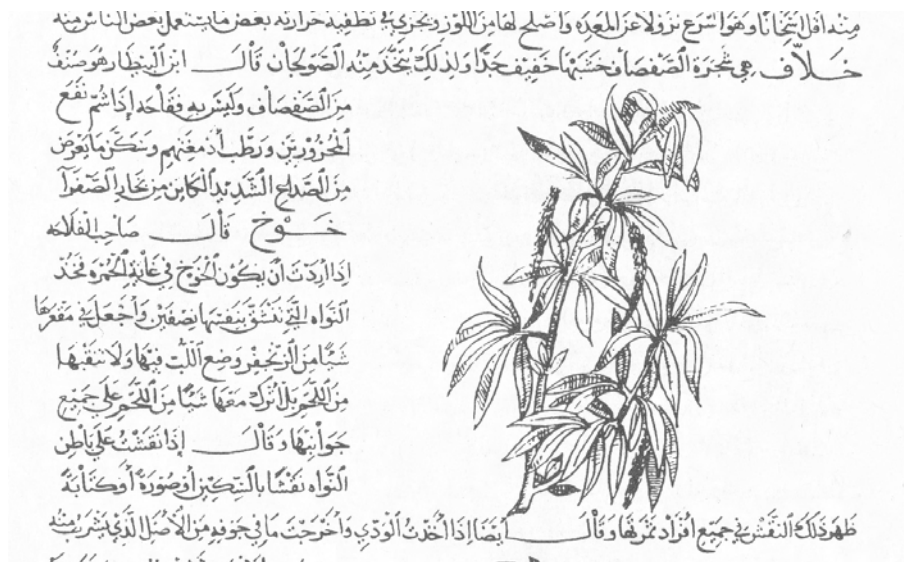 منه أقل اسخانا وهو أسرع نزولا عن المعدة وأصلح لها من اللوز ويجزي في تطفية حرارته بعض ما يستعمل بعض الناس منه
خلاف هي شجرة الصفصاف وخشبها خفيف جدا ولذلك يتخذ منه الصولجان قال ابن البيطار هو صنف
من الصفصاف وليس به فقاحه إذا شم نفع
المحرورين ورطب أدمغتهم وسكن ما يعرض
من الصداع الشديد الكاين من بخار الصفرا
خوخ قال صاحب الفلاحه
إذا اردت ان يكون الخوخ في غاية الحمره فخذ
النواه التي تنشق بنفسها نصفين واجعل في مقعرها
شيا من الزنجفر وضع اللب فيها ولا تنقها
من اللحم بل اترك معها شيا من اللحم على جميع
جوانبها وقال إذا نقشت على باطن
النواه نقشا بالسكين أو صورة أو كتابة
ظهر ذلك النقش في جميع افراد ثمرتها وقال أيضا إذا أخذت الودي وأخرجت ما في جوفه من الأصل الذي يشرب منه